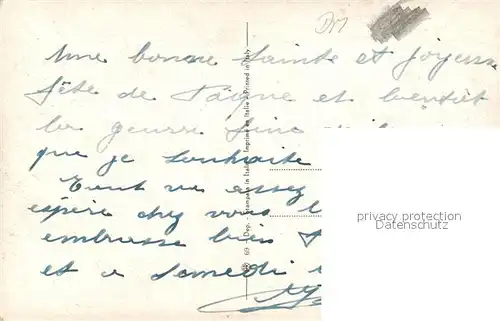 DM
Une bonne sainte et joyeuse
fête de Pâque et bientôt
la guerre fini
que je souhaite
Tout va assez
espère chez vous
embrasse bien
et a samedi
69 - Dep. - Stampata in Italia - Imprimé en Italie - Printed in Italy
privacy protection
Datenschutz